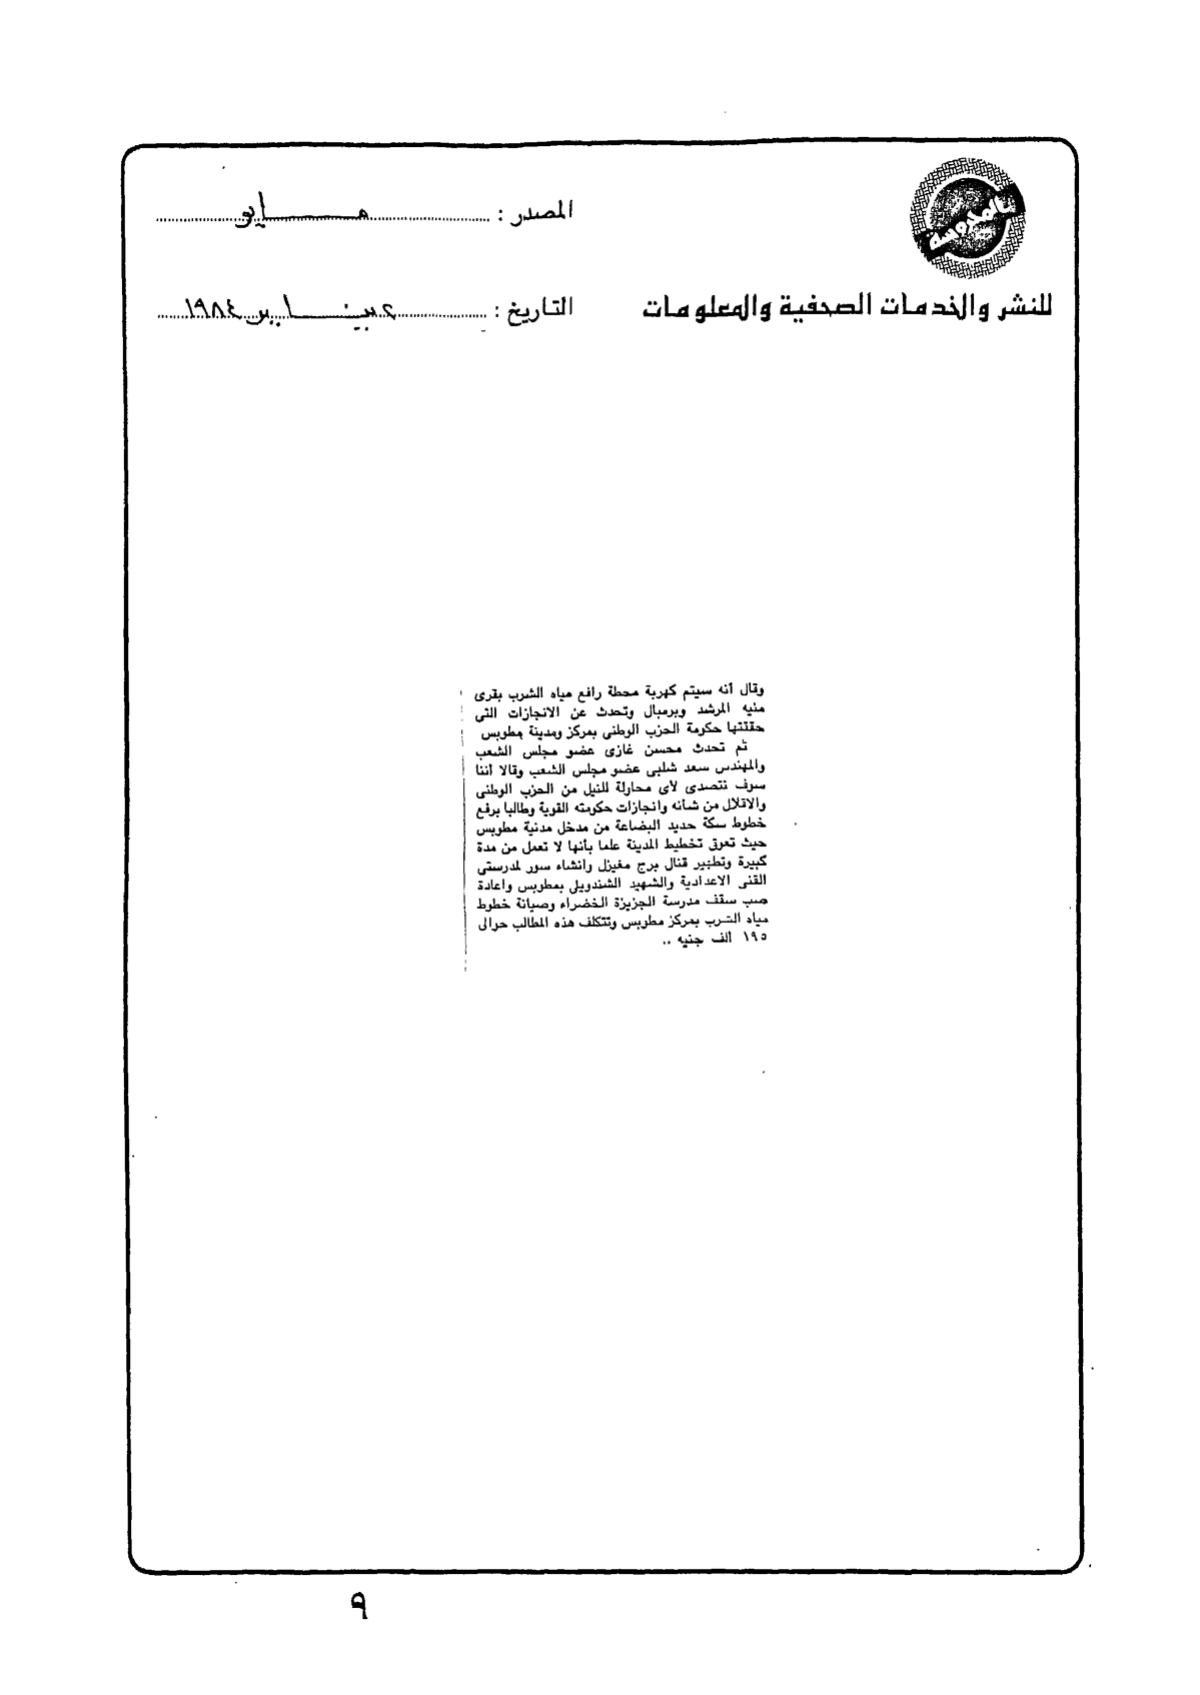 المحروسة
للنشر والخدمات الصحفية والمعلومات
المصدر : مايو
التاريخ : ٢ يناير ١٩٨٤
وقال أنه سيتم كهربة محطة رافع مياه الشرب بقرى
منيه المرشد وبرمبال وتحدث عن الانجازات التى
حققتها حكومة الحزب الوطنى بمركز ومدينة مطوبس
ثم تحدث محسن غازى عضو مجلس الشعب
والمهندس سعد شلبى عضو مجلس الشعب وقالا أننا
سوف نتصدى لأى محاولة للنيل من الحزب الوطنى
والاقلال من شأنه وانجازات حكومته القوية وطالبا برفع
خطوط سكة حديد البضاعة من مدخل مدنية مطوبس
حيث تعوق تخطيط المدينة علما بأنها لا تعمل من مدة
كبيرة وتطهير قنال برج مغيزل وانشاء سور لمدرستى
القنى الاعدادية والشهيد الشندويلى بمطوبس واعادة
صب سقف مدرسة الجزيرة الخضراء وصيانة خطوط
مياه الشرب بمركز مطوبس وتتكلف هذه المطالب حوالى
١٩٥ ألف جنيه ..
٩